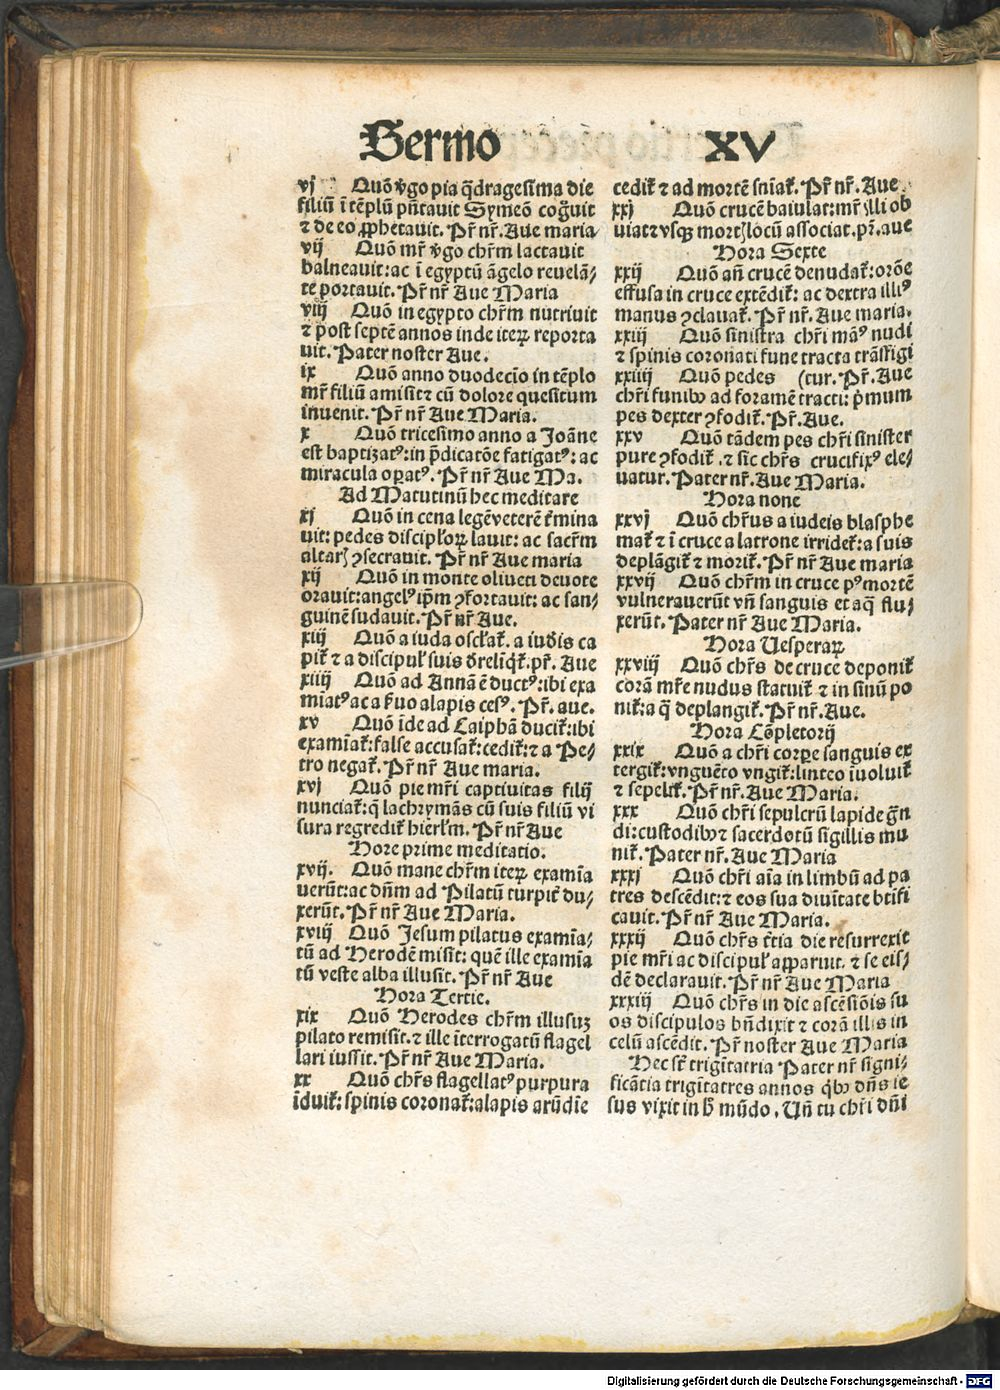 Sermo XV
vj Quō v̄go pia q̄dragesima die
filiū ī tēplū p̄ntauit Symeō coḡuit
⁊ de eo ꝓphetauit. Pr̄ nr̄. Aue maria
vij Quō mr̄ v̄go chr̄m lactauit
balneauit: ac ī egyptū āgelo reuelā⸗
te portauit. Pr̄ nr̄ Aue Maria
viij Quō in egypto chr̄m nutriuit
⁊ post septē annos inde iteꝝ reporta
uit. Pater noster Aue.
ix Quō anno duodecīo in tēplo
mr̄ filiū amisit ⁊ cū dolore quesitum
inuenit. Pr̄ nr̄ Aue Maria.
x Quō tricesimo anno a Joāne
est baptizatꝰ: in p̄dicatōe fatigatꝰ: ac
miracula oꝑatꝰ. Pr̄ nr̄ Aue Ma.
Ad Matutinū hec meditare
xj Quō in cena legē veterē t̄mina
uit: pedes discipl̓oꝝ lauit: ac sacr̄m
altarꝭ ꝯsecrauit. Pr̄ nr̄ Aue maria
xij Quō in monte oliueti deuote
orauit: angelꝰ ip̄m ꝯfortauit: ac san⸗
guinē sudauit. Pr̄ nr̄ Aue.
xiij Quō a iuda oscl̓at᷑. a iud̓is ca
pit᷑ ⁊ a discipul̓ suis d̓relīq̄t᷑. pr̄. Aue
xiiij Quō ad Annā ē ductꝰ: ibi exa
miatꝰ ac a s̓uo alapis cesꝰ. Pr̄. aue.
xv Quō īde ad Caiphā ducit᷑: ibi
examīat᷑: false accusat᷑: cedit᷑: ⁊ a Pe⸗
tro negat᷑. Pr̄ nr̄ Aue maria.
xvj Quō pie mr̄i captiuitas filij
nunciat᷑: q̄ lachrymās cū suis filiū vi
sura regredit᷑ hierl̓m. Pr̄ nr̄ Aue
Hore prime meditatio.
xvij. Quō mane chr̄m iteꝝ examīa
uerūt: ac dn̄m ad Pilatū turpit̓ du⸗
xerūt. Pr̄ nr̄ Aue Maria.
xviij Quō Jesum pilatus examīa⸗
tū ad Herodē misit: quē ille examīa
tū veste alba illusit. Pr̄ nr̄ Aue
Hora Tertie.
xix Quō Herodes chr̄m illusuꝫ
pilato remisit. ⁊ ille īterrogatū flagel
lari iussit. Pr̄ nr̄ Aue Maria.
xx Quō chr̄s flagellatꝰ purpura
īduit᷑: spinis coronat᷑: alapis arūdīe
cedit᷑ ⁊ ad mortē sn̄iat᷑. Pr̄ nr̄. Aue
xxj Quō crucē baiulat: mr̄ illi ob
uiat ⁊ vsqꝫ mortꝭ locū associat. pr̄. aue
Hora Sexte
xxij Quō an̄ crucē denudat᷑: orōe
effusa in cruce extēdit᷑: ac dextra illiꝰ
manus ꝯclauat᷑. Pr̄ nr̄. Aue maria.
xxiij Quō sinistra chr̄i māꝰ nudi
⁊ spinis coronati fune tracta trāsfigi
xxiiij Quō pedes (tur. Pr̄. Aue
chr̄i funibꝰ ad foramē tracti: p̄mum
pes dexter ꝯfodit᷑. Pr̄. Aue.
xxv Quō tādem pes chr̄i sinister
pure ꝯfodit᷑. ⁊ sic chr̄s crucifixꝰ ele⸗
uatur. Pater nr̄. Aue Maria.
Hora none
xxvj Quō chr̄us a iudeis blasphe
mat᷑ ⁊ ī cruce a latrone irridet᷑: a suis
deplāgit᷑ ⁊ morit᷑. Pr̄ nr̄ Aue maria
xxvij Quō chr̄m in cruce pꝰ mortē
vulnerauerūt vn̄ sanguis et aq̄ flu⸗
xerūt. Pater nr̄ Aue Maria.
Hora Uesperaꝝ
xxviij Quō chr̄s de cruce deponit᷑
corā mr̄e nudus statuit᷑ ⁊ in sinū po
nit᷑: a q̄ deplangit᷑. Pr̄ nr̄. Aue.
Hora Cōpletorij
xxix Quō a chr̄i corꝑe sanguis ex
tergit᷑: vnguēto vngit᷑: linteo īuoluit᷑
⁊ sepelit᷑. Pr̄ nr̄. Aue Maria.
xxx Quō chr̄i sepulcrū lapide ḡn
di: custodibꝰ ⁊ sacerdotū sigillis mu
nit᷑. Pater nr̄. Aue Maria
xxxj Quō chr̄i aīa in limbū ad pa
tres descēdit: ⁊ eos sua diuītate btīfi
cauit. Pr̄ nr̄ Aue Maria.
xxxij Quō chr̄s t̄tia die resurrexit
pie mr̄i ac discipul̓ apparuit. ⁊ se eis⸗
dē declarauit. Pr̄ nr̄ Aue Maria
xxxiij Quō chr̄s in die ascēsiōis su
os discipulos bn̄dixit ⁊ corā illis in
celū ascēdit. Pr̄ noster Aue Maria
Hec sūt trigītatria Pater nr̄ signi⸗
ficātia trigītatres annos q̓bꝰ dn̄s ie
sus vixit in h̓ mūdo. Un̄ tu chr̄i dn̄i
Digitalisierung gefördert durch die Deutsche Forschungsgemeinschaft - DFG